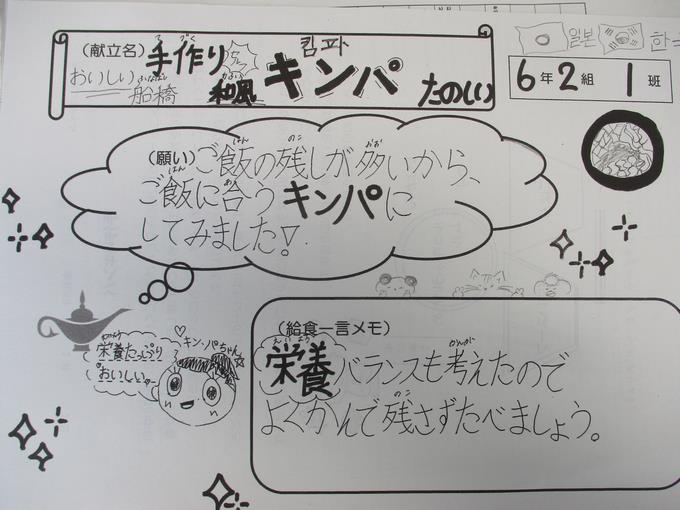 (献立名) 手作り 和風 キンパ
킴파
おいしい 船橋 たのしい
일본 한국
6年2組 1班
(願い)ご飯の残しが多いから、
ご飯に合うキンパに
してみました!
栄養たっぷり
おいしいy~
キンパちゃん
(給食一言メモ)
栄養バランスも考えたので
よくかんで残さずたべましょう。